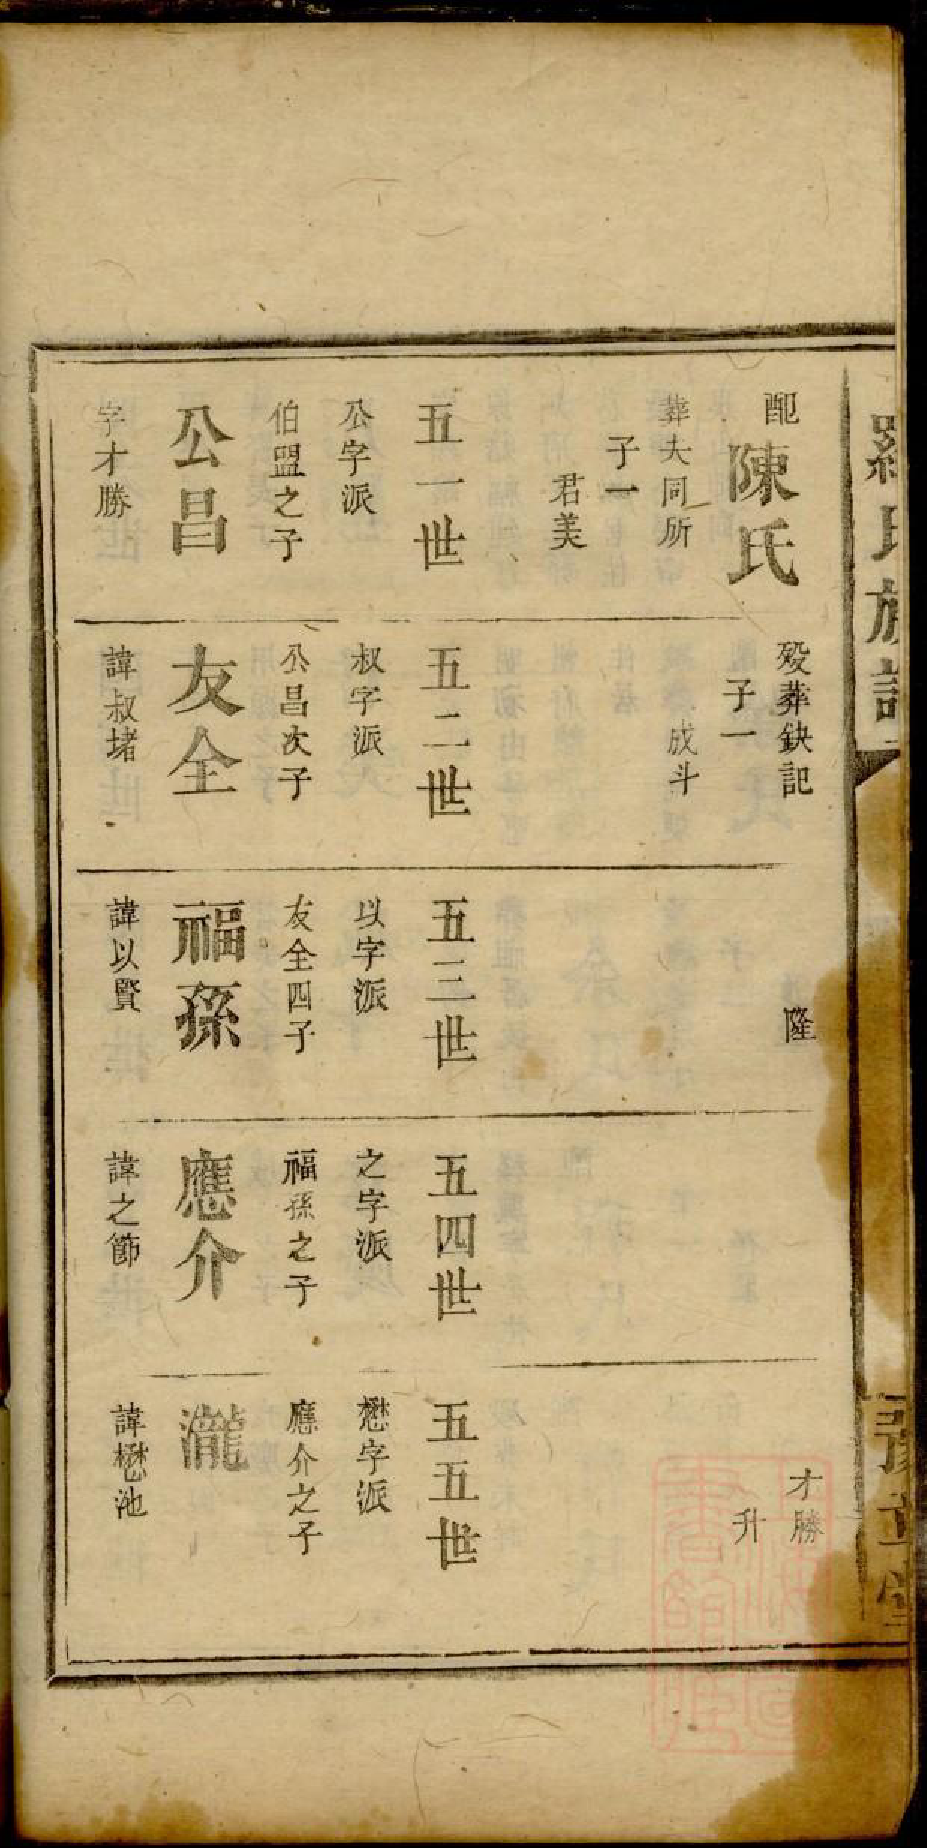 羅氏族譜
配陳氏
葬夫同所
子一
君美
五一世
公字派
伯盟之子
公昌
字才勝
歿葬鈌記
子一
成斗
五二世
叔字派
公昌次子
友全
諱叔堵
隆
五三世
以字派
友全四子
福孫
諱以賢
五四世
之字派
福孫之子
應介
諱之節
才勝
升
五五世
懋字派
應介之子
瀧
諱懋池